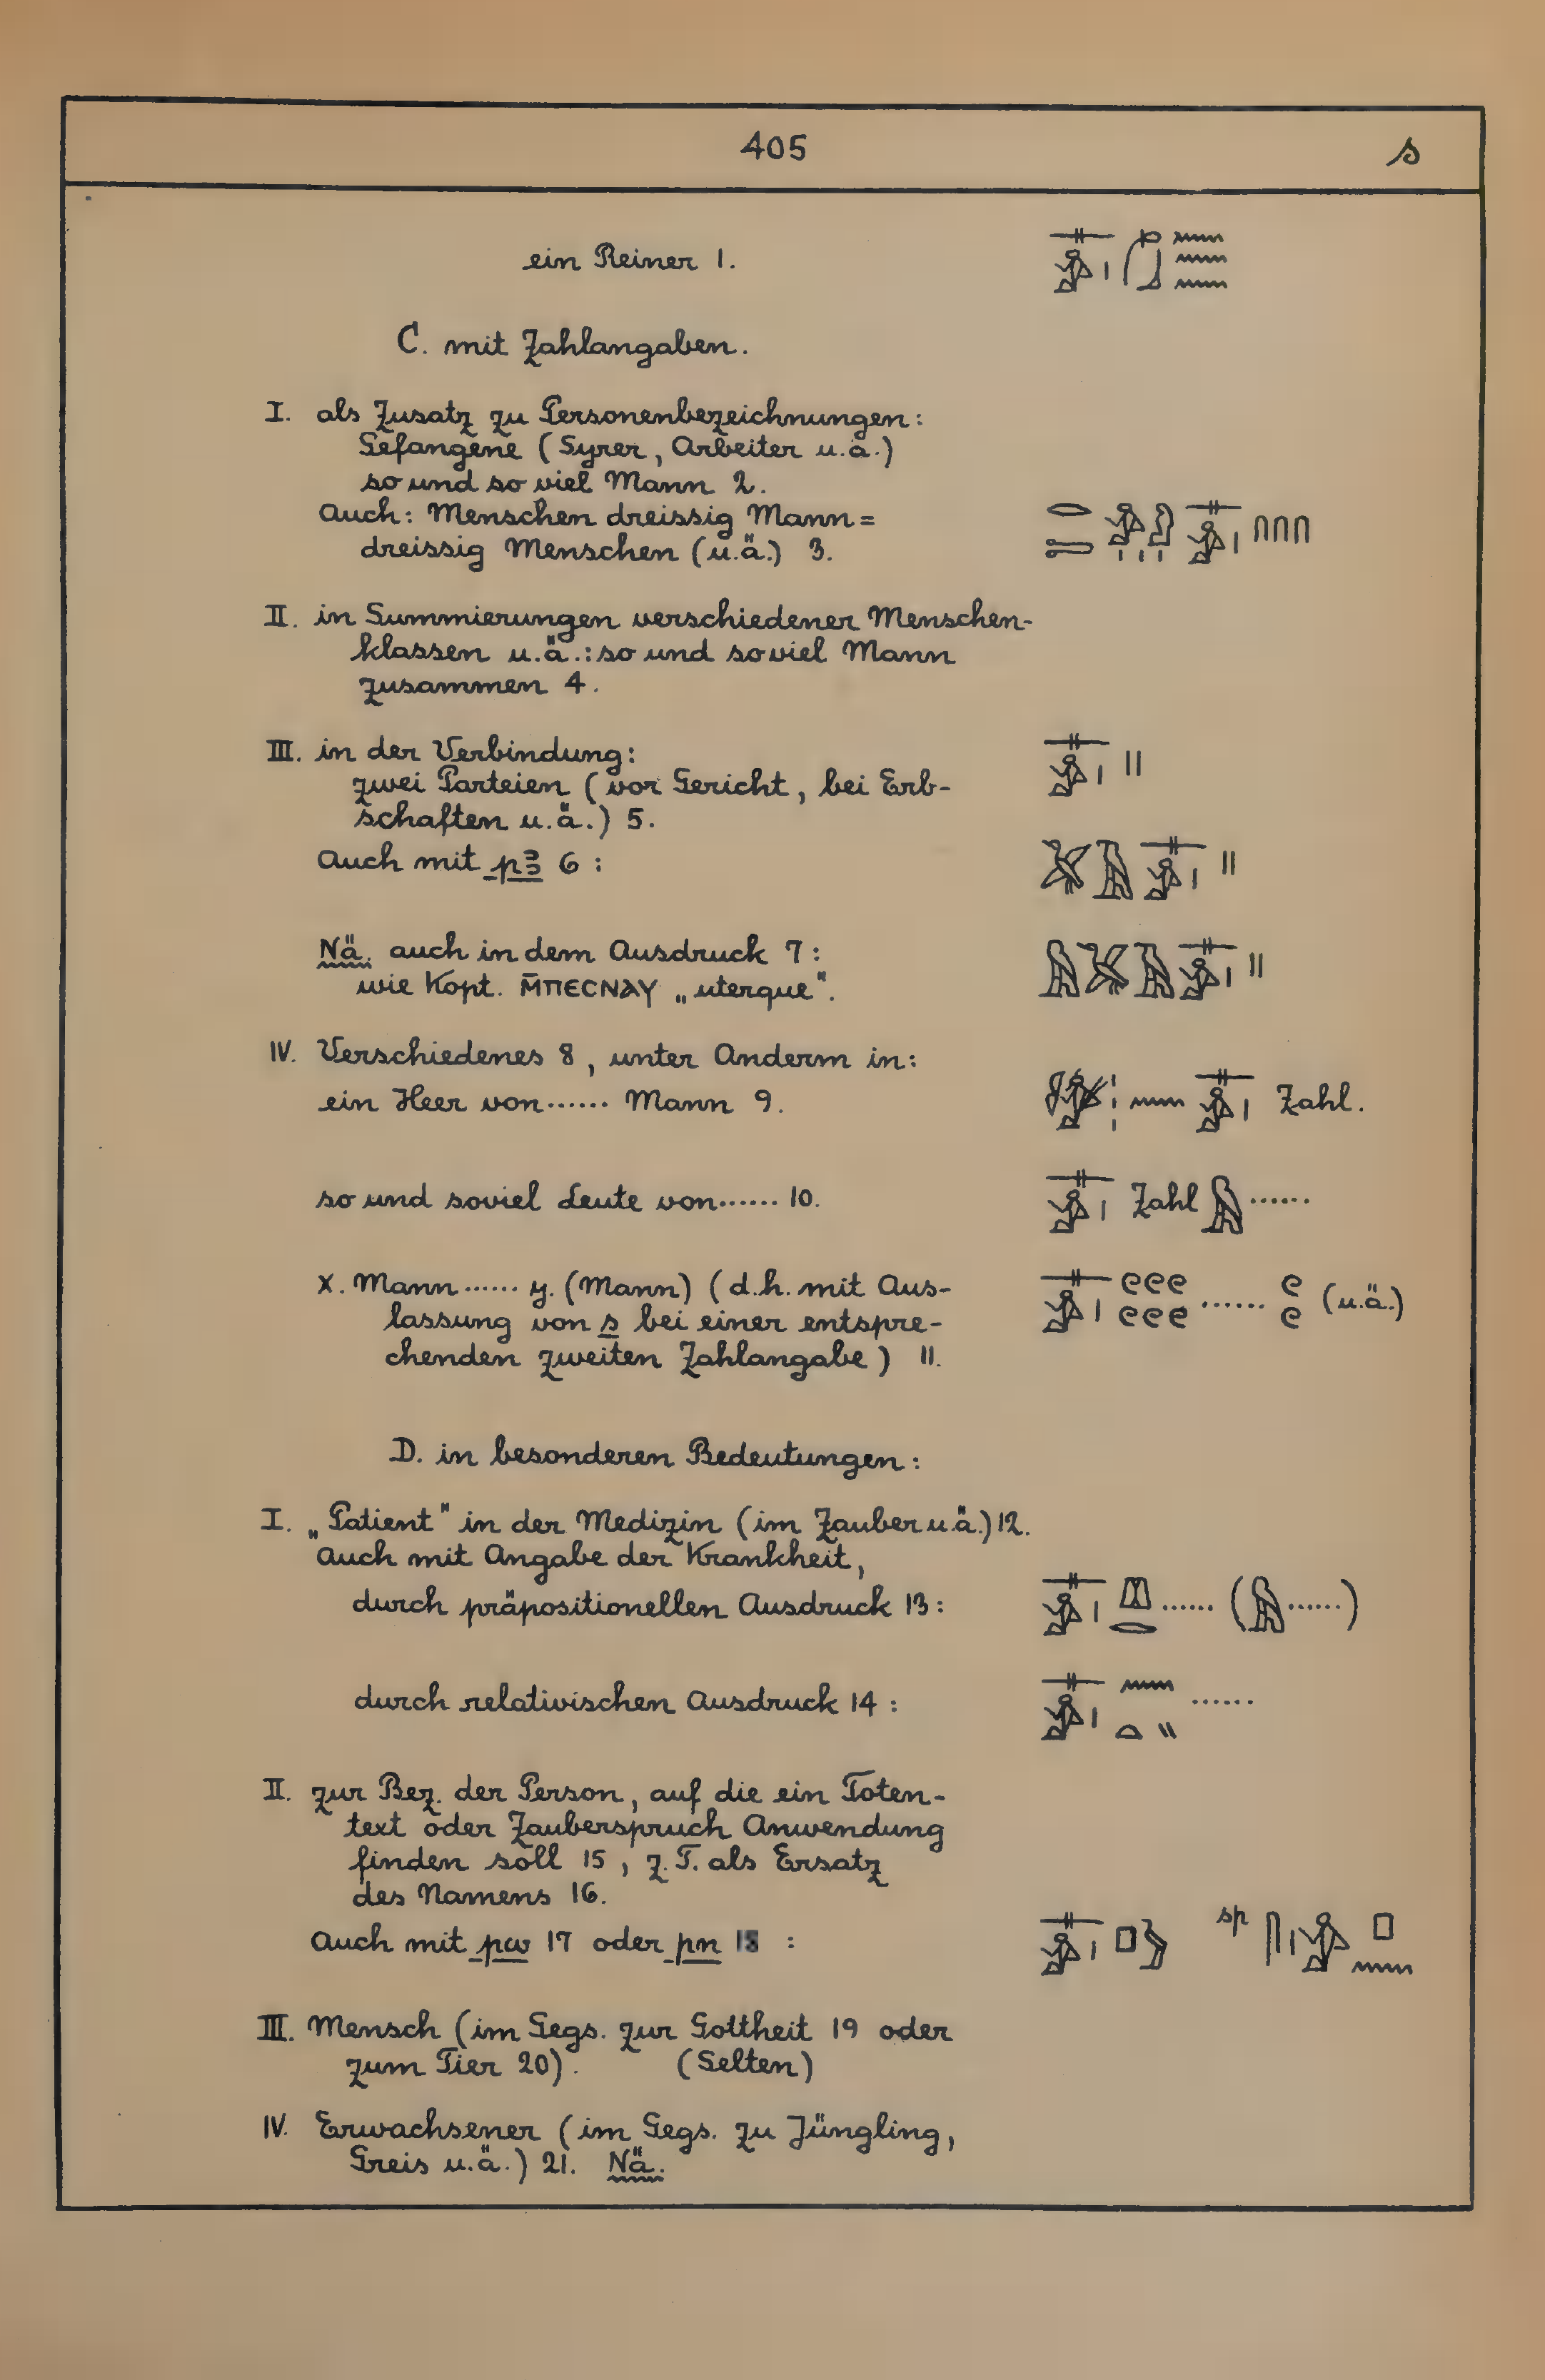 405 s
ein Reiner 1.
C. mit Zahlangaben.
I. als Zusatz zu Personenbezeichnungen:
Gefangene (Syrer, Arbeiter u.ä.)
so und so viel Mann 2.
Auch: Menschen dreissig Mann =
dreissig Menschen (u.ä.) 3.
II. in Summierungen verschiedener Menschen-
klassen u.ä.: so und soviel Mann
zusammen 4.
III. in der Verbindung:
zwei Parteien (vor Gericht, bei Erb-
schaften u.ä.) 5.
Auch mit pꜣ 6:
Nä. auch in dem Ausdruck 7:
wie Kopt. M̄ΠЄCNAY „uterque“.
IV. Verschiedenes 8, unter Anderm in:
ein Heer von ...... Mann 9. Zahl.
so und soviel Leute von ...... 10. Zahl ......
X. Mann ...... y. (Mann) (d.h. mit Aus- ...... (u.ä.)
lassung von s bei einer entspre-
chenden zweiten Zahlangabe) 11.
D. in besonderen Bedeutungen:
I. „Patient“ in der Medizin (im Zauber u.ä.) 12.
Auch mit Angabe der Krankheit,
durch präpositionellen Ausdruck 13: ...... (......)
durch relativischen Ausdruck 14: ......
II. zur Bez. der Person, auf die ein Toten-
text oder Zauberspruch Anwendung
finden soll 15, z.T. als Ersatz
des Namens 16.
Auch mit pw 17 oder pn 18 : sp
III. Mensch (im Gegs. zur Gottheit 19 oder
zum Tier 20). (Selten)
IV. Erwachsener (im Gegs. zu Jüngling,
Greis u.ä.) 21. Nä.